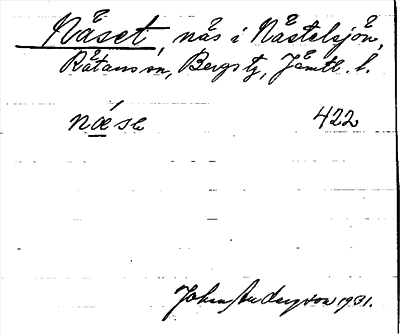 Näset, näs i Nästelsjön,
Rätans sn, Bergs tg, Jämtl. l.
næ´sɘ 422
Johan Anderzon 1931.